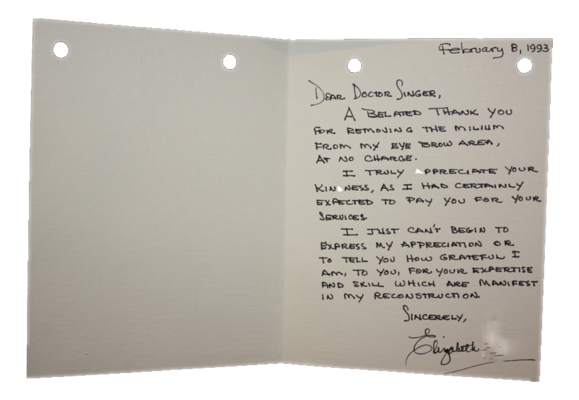 February 8, 1993
Dear Doctor Singer,
A belated thank you
for removing the milium
from my eye brow area,
at no charge.
I truly appreciate your
kindness, as I had certainly
expected to pay you for your
services
I just can't begin to
express my appreciation or
to tell you how grateful I
am, to you, for your expertise
and skill which are manifest
in my reconstruction
Sincerely,
Elizabeth